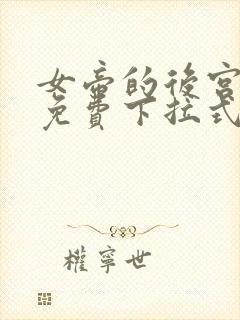 女帝的後宮
免費下拉式
權寧世